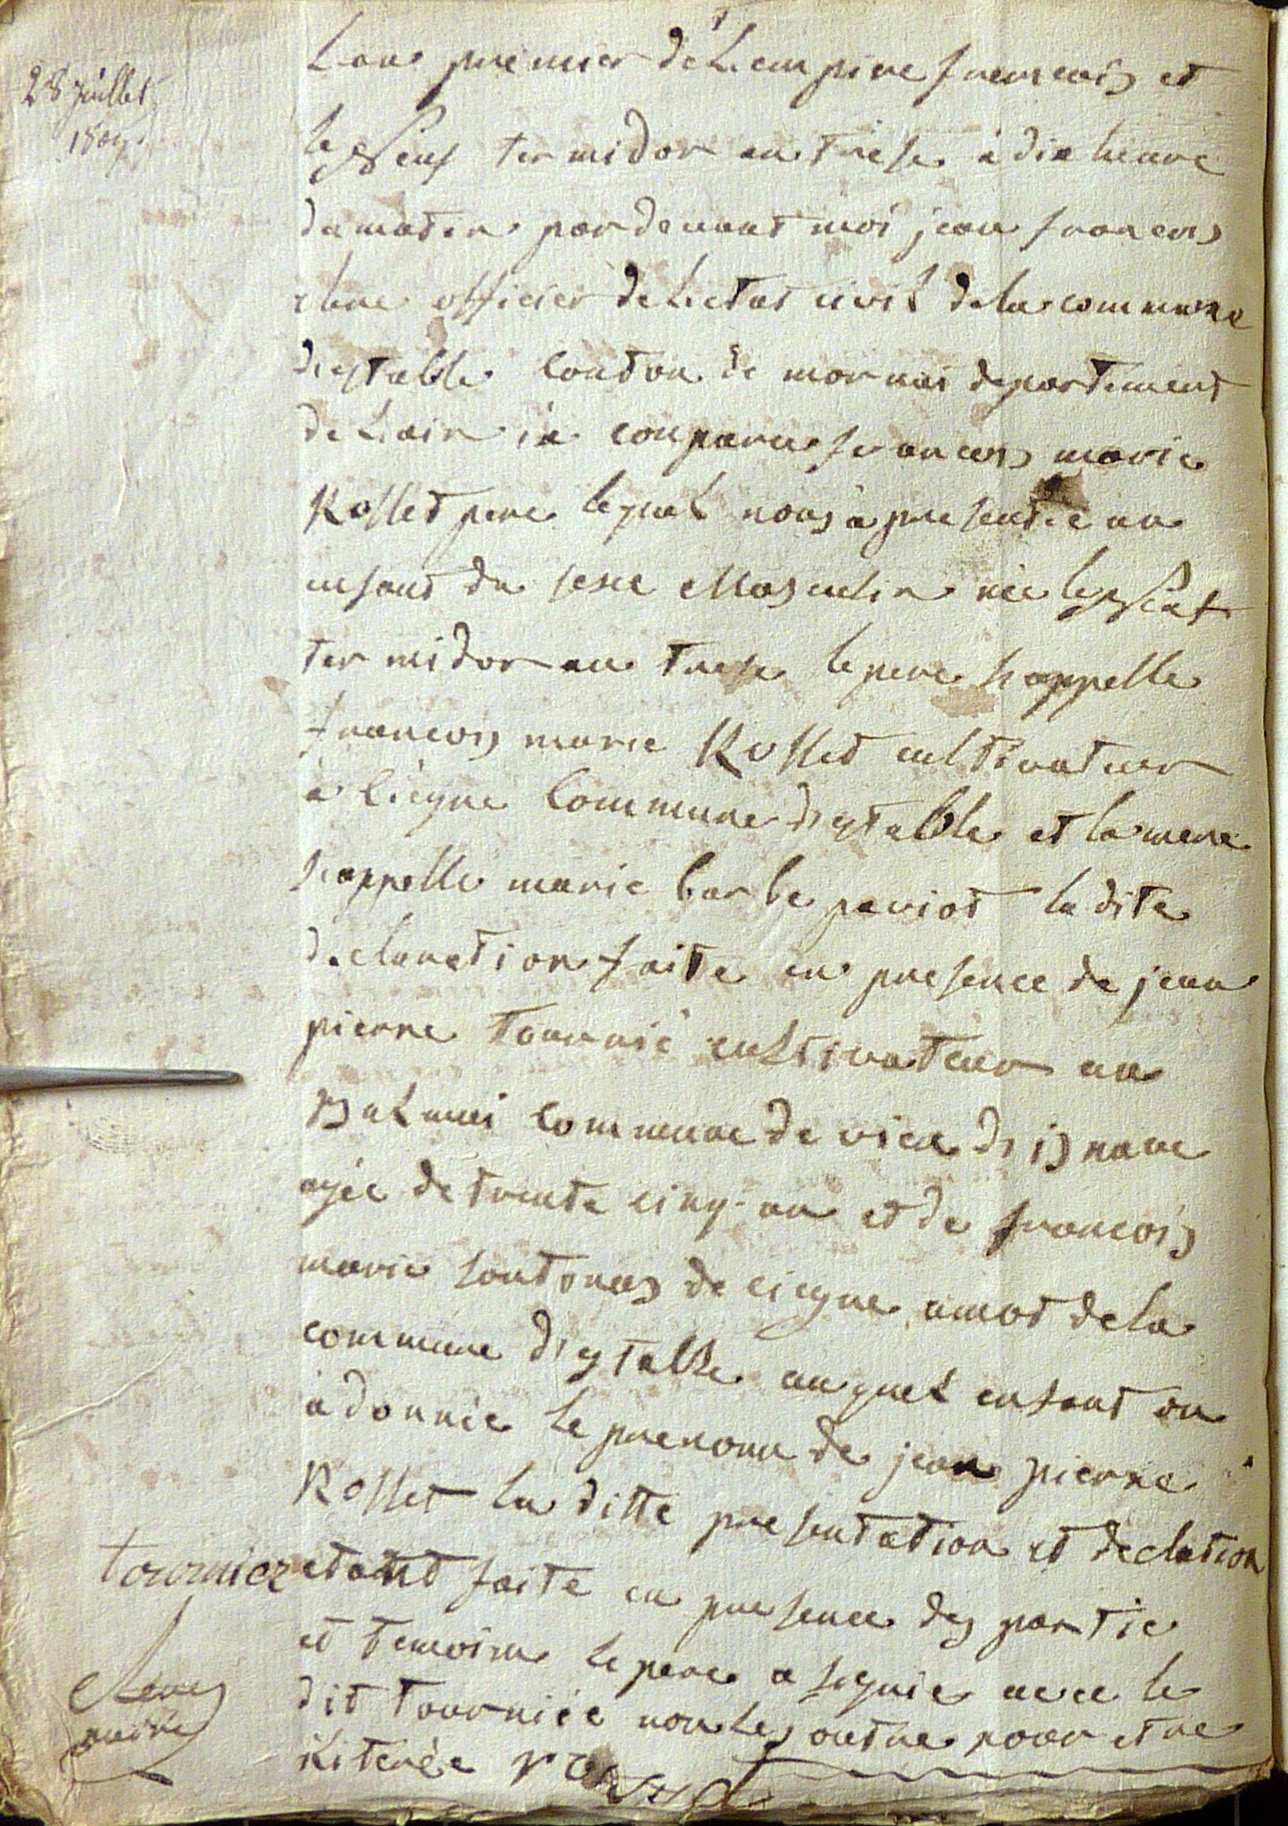 28 juillet
Lan premier de Lempire francois et
le neuf termidor an treise à dix heure
du matin pardevant moi jean francois
officier de Letat civil de la commune
dystable Canton de mornai departement
de Lain à comparu francois marie
Rosset pere lequel nous à presentée un
enfant du sexe Masculin née le
termidor an treise le pere sappelle
francois marie Rosset cultivateur
à Ciegne Commune dystable et la mere
sappelle marie barbe periot la dite
declaration faite en presence de jean
pierre Tournié cultivateur au
Balmai commune de vieu disnave
agée de trente cinq an et de francois
marie de ciegne amot de la
commune dystable auquel enfant on
à donnée le prenom de jean pierre
Rosset la ditte presentation et declation
tournier etant faite en presence des partie
et temoins le pere a signée avec le
dit tourniée non les outre pour etre
iliterée